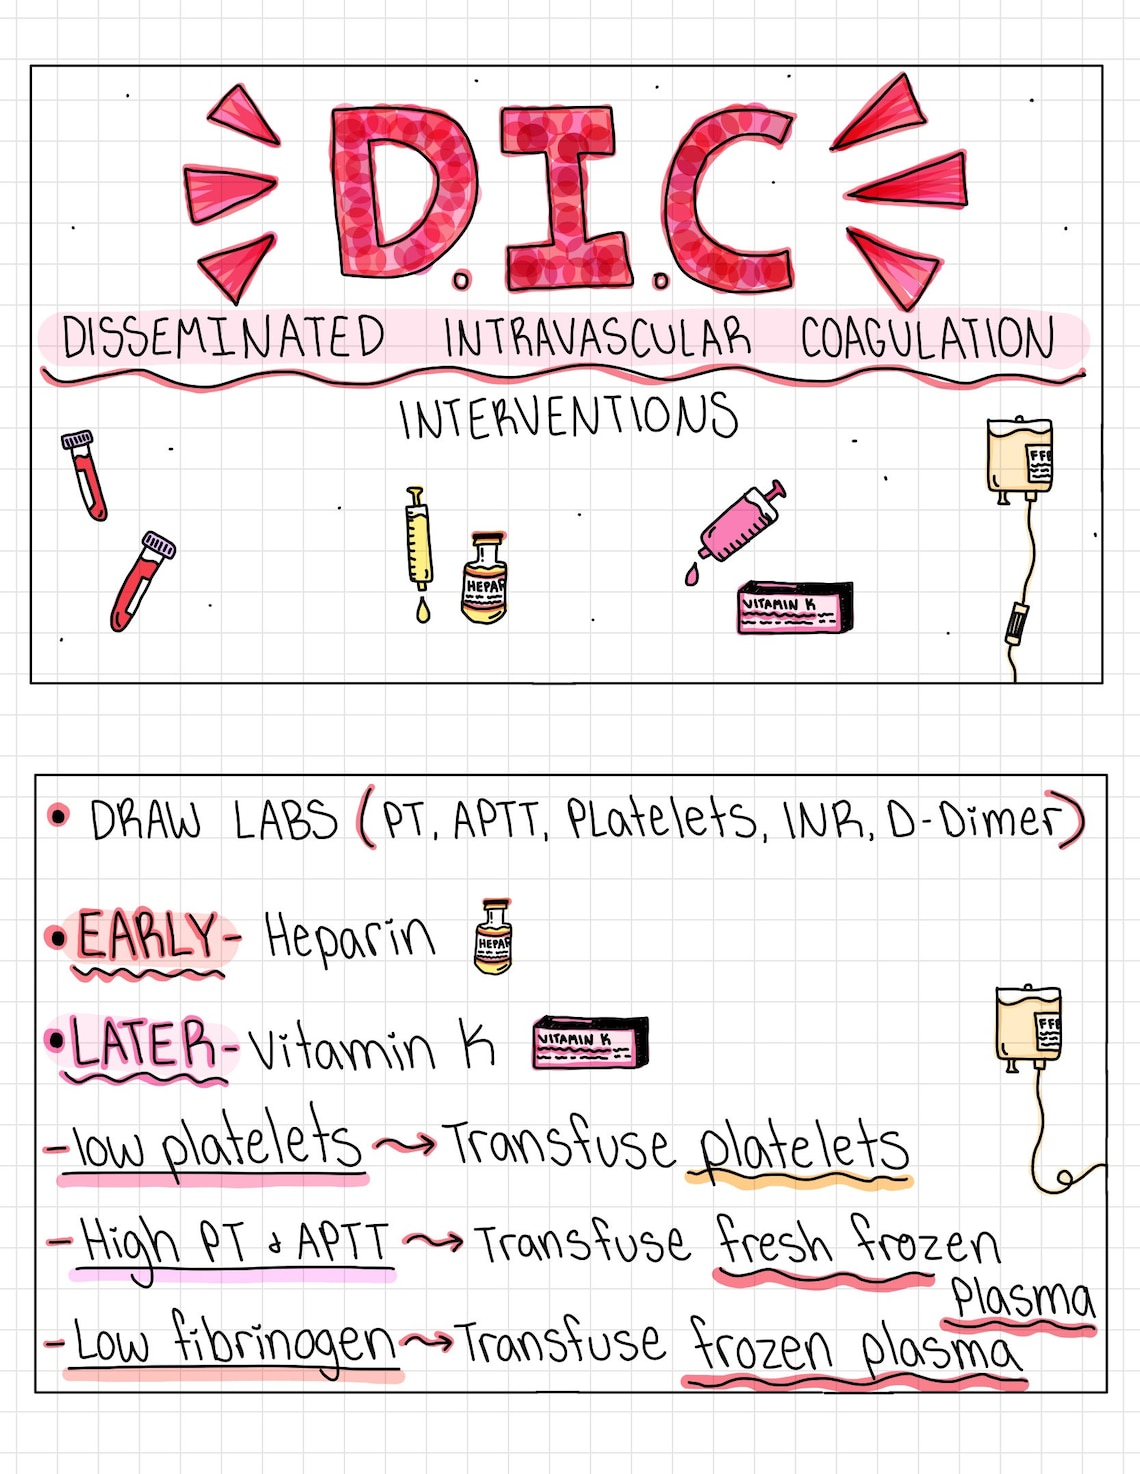 D.I.C
DISSEMINATED INTRAVASCULAR COAGULATION
INTERVENTIONS
FFP
HEPAR
VITAMIN K
• DRAW LABS (PT, APTT, Platelets, INR, D-Dimer)
• EARLY- Heparin
HEPAR
• LATER- Vitamin K
VITAMIN K
FFP
- low platelets → Transfuse platelets
- High PT & APTT → Transfuse fresh frozen
Plasma
- Low fibrinogen → Transfuse frozen plasma